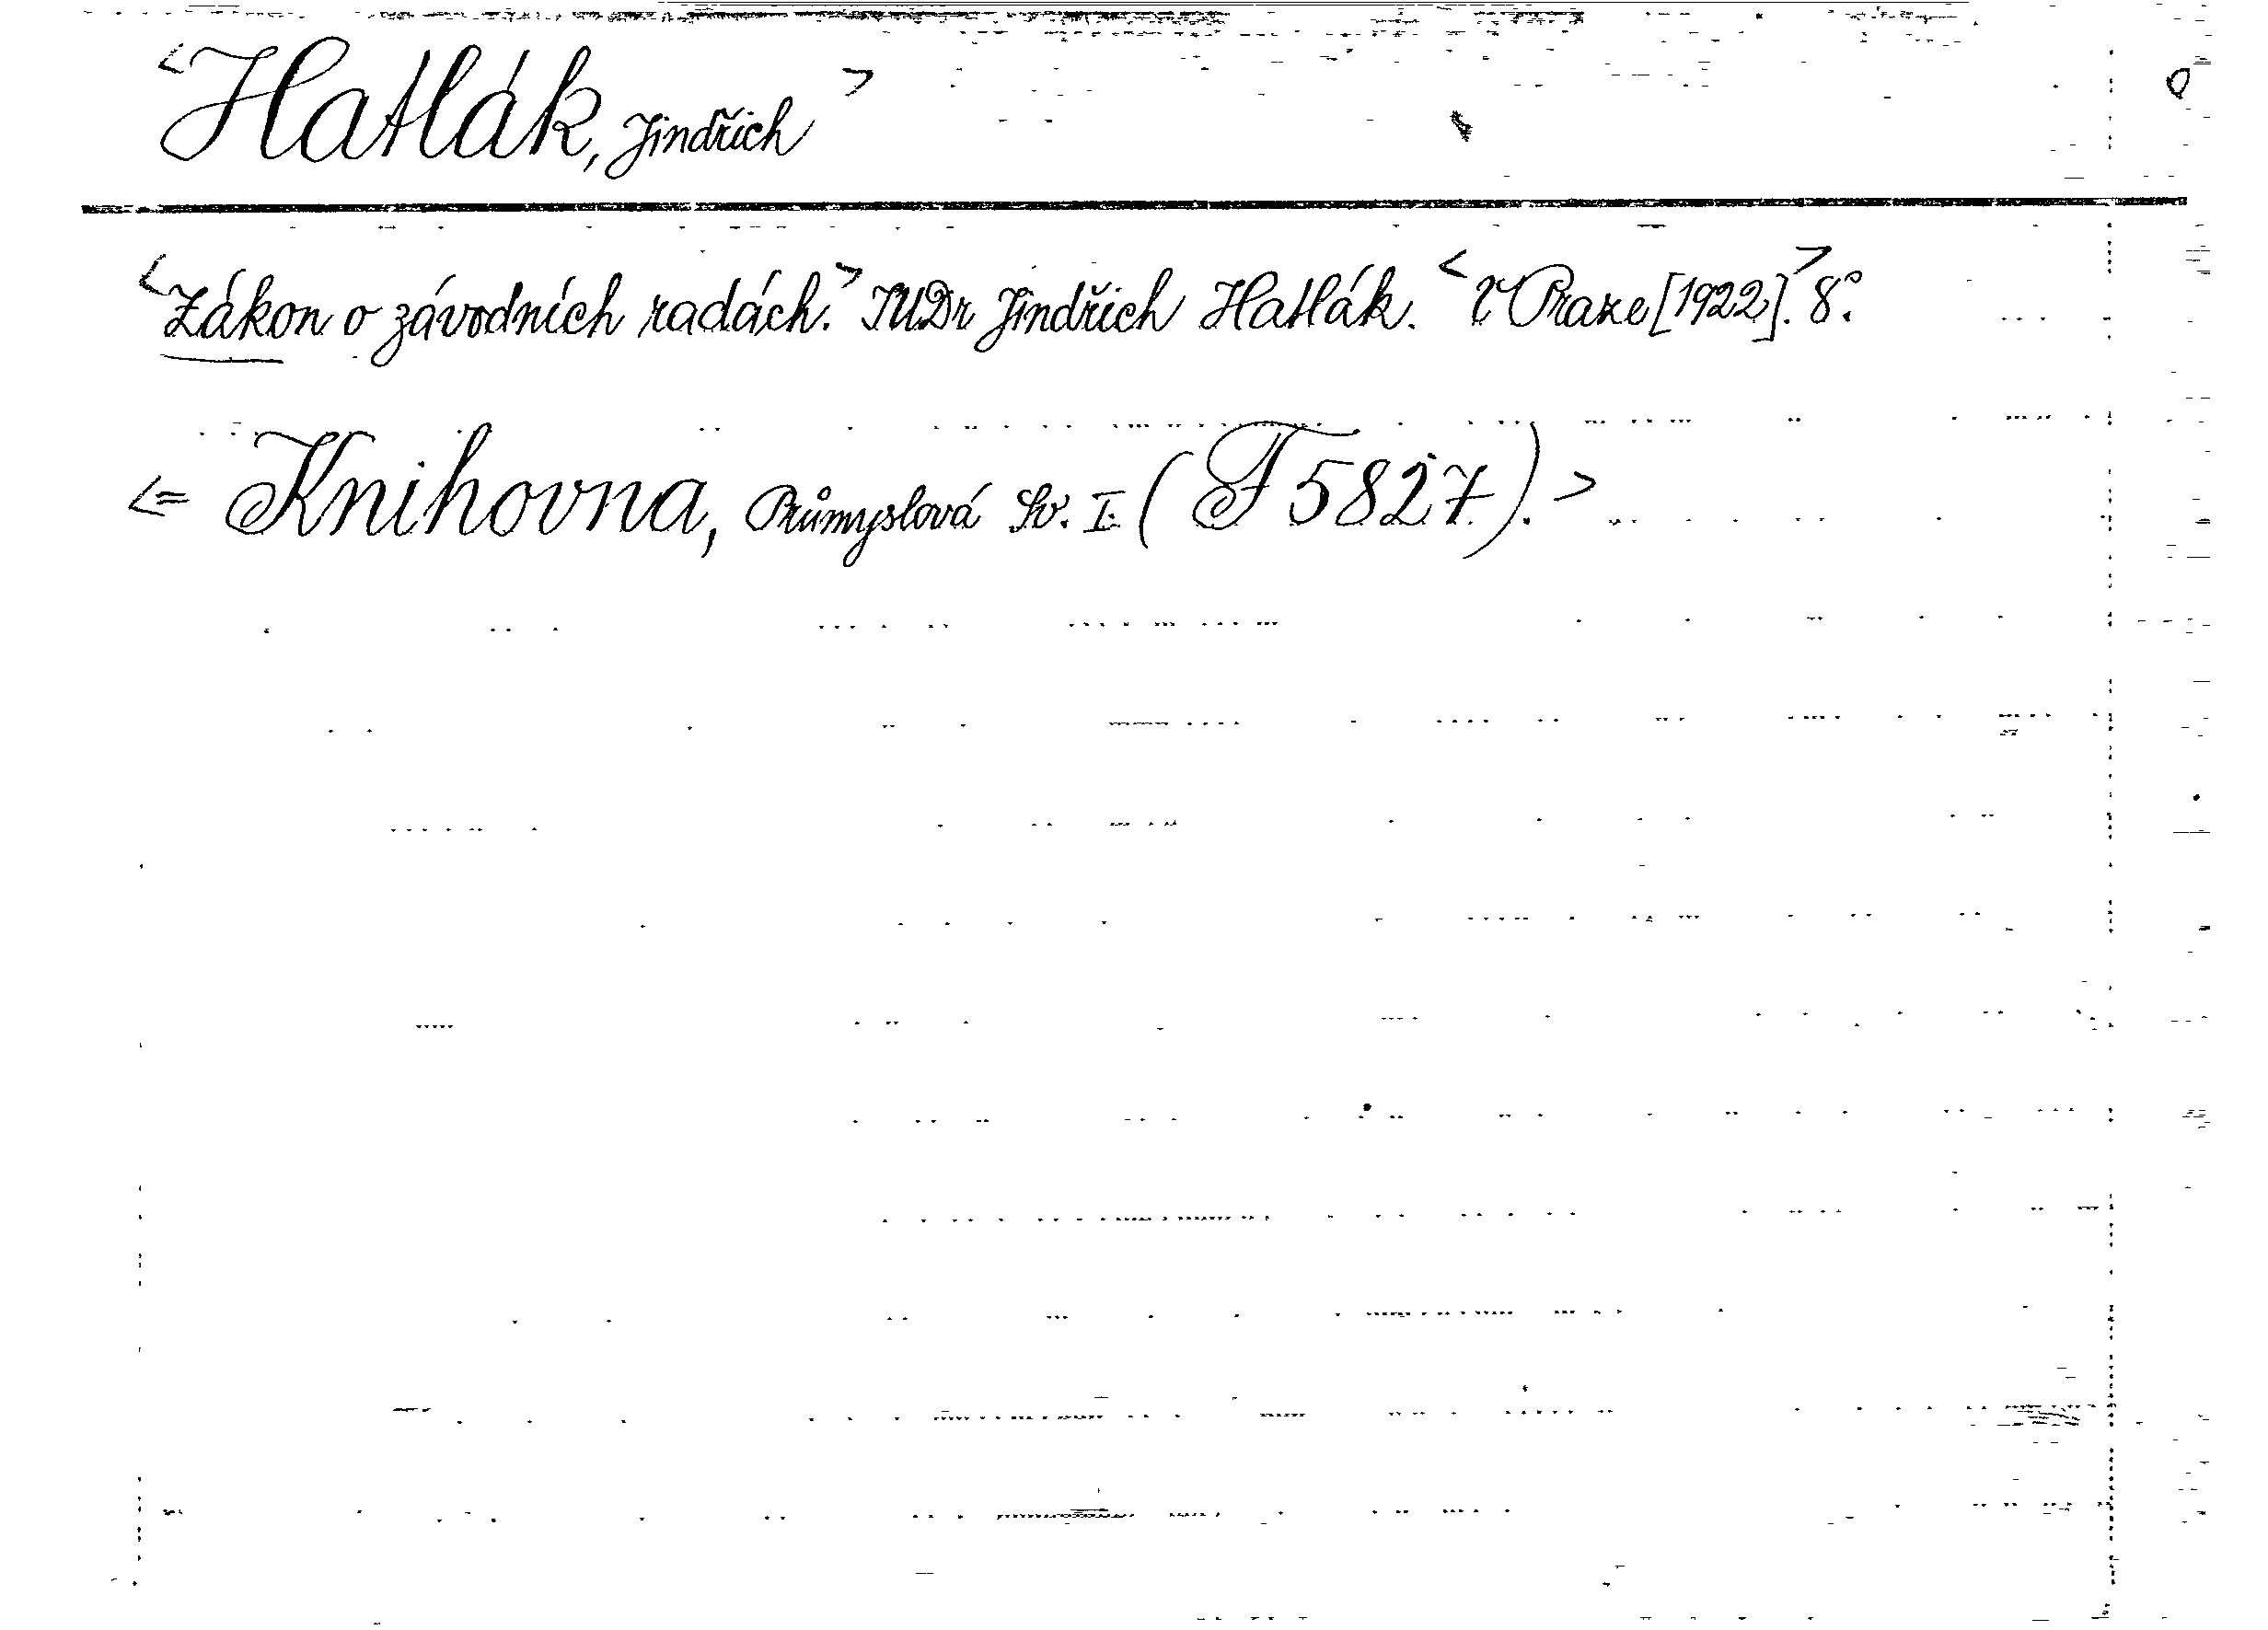 <Hatlák, Jindřich>
<Zákon o závodních radách.> JUDr Jindřich Hatlák. <V Praze [1922].> 8°.
<= Knihovna, Průmyslová Sv. I. (F 5827).>